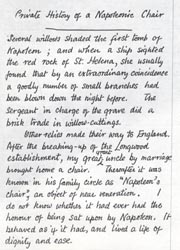 Private History of a Napoleonic Chair
Several willows shaded the first tomb of
Napoleon; and when a ship sighted
the red rock of St. Helena, she usually
found that by an extraordinary coincidence
a goodly number of small branches had
been blown down the night before. The
Sergeant in charge of the grave did a
brisk trade in willow-cuttings.
Other relics made their way to England.
After the breaking-up of the Longwood
establishment, my great uncle by marriage
brought home a chair. Thereafter it was
known in his family circle as "Napoleon's
chair", an object of near veneration.
do not know whether it had ever had the
honour of being sat upon by Napoleon. It
behaved as if it had, and lived a life of
dignity and ease.